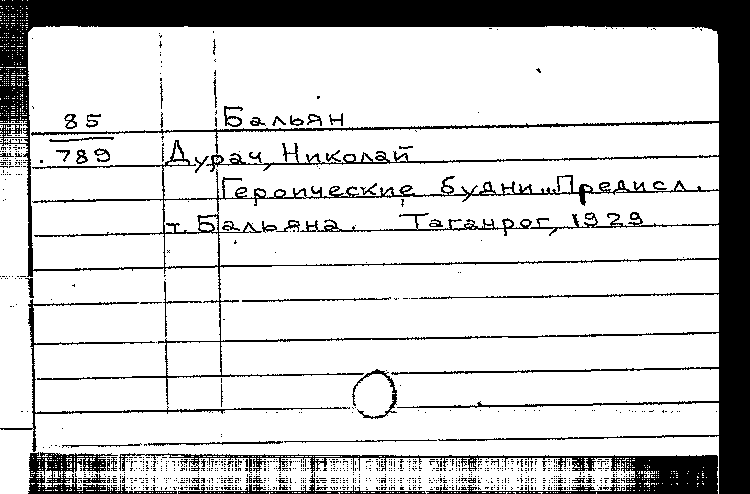 85 Бальян
789 Дурач, Николай
Героические будни... Предисл.
т. Бальяна. Таганрог, 1929